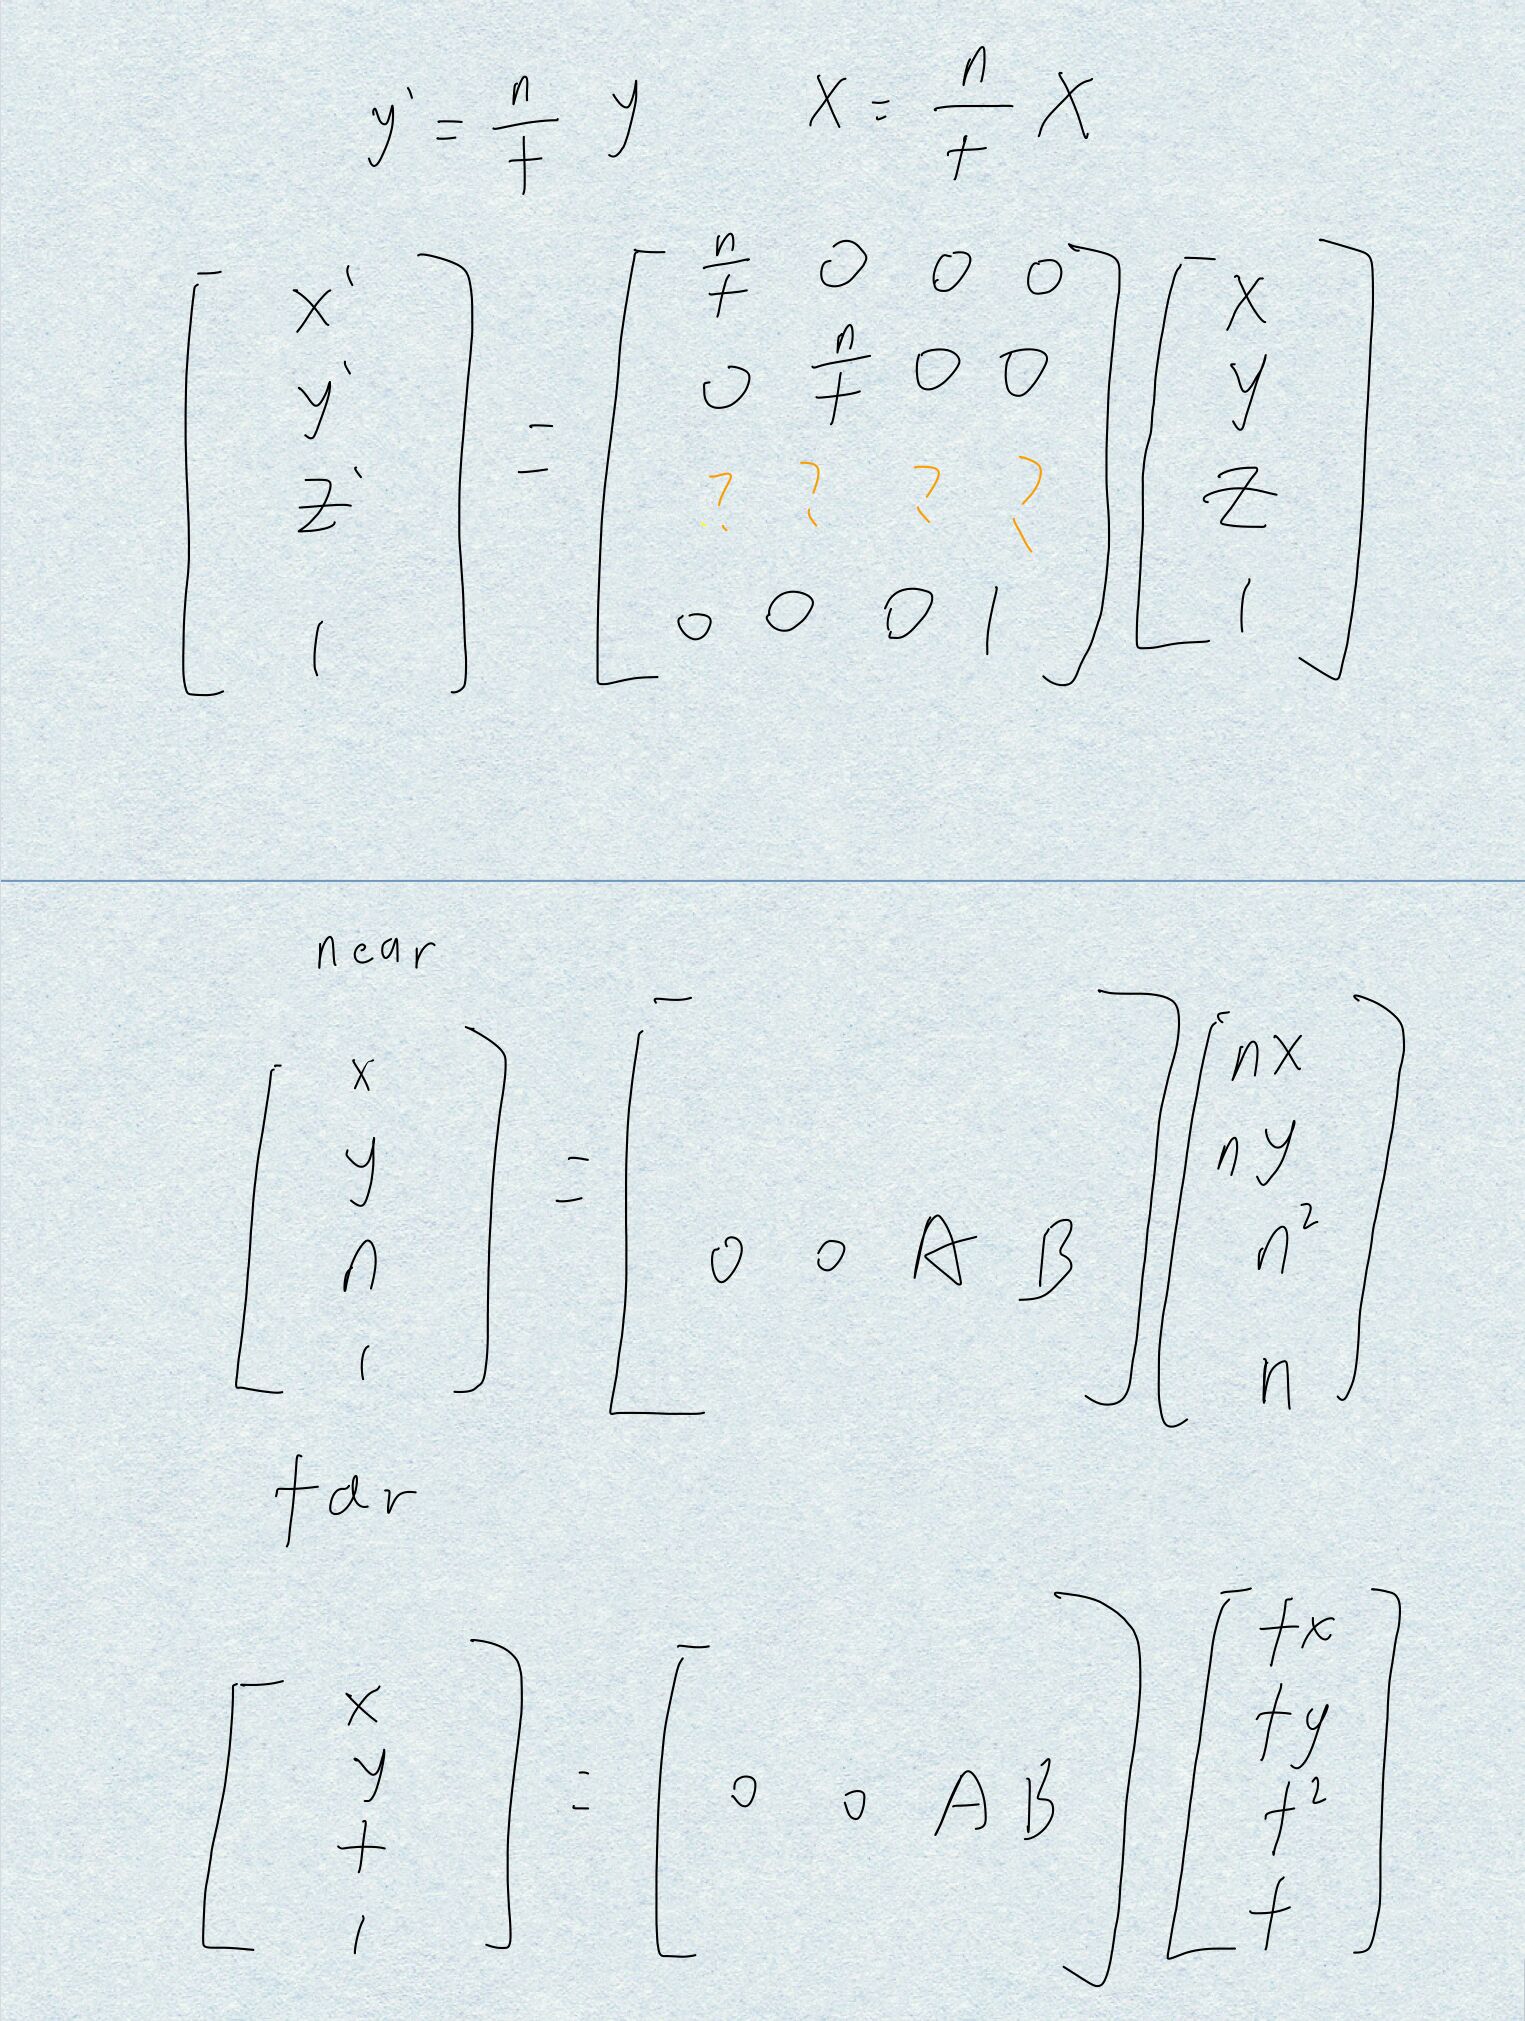 y' = n/f y X = n/f X
[x' y' z' 1] = [n/f 0 0 0; 0 n/f 0 0; ? ? ? ?; 0 0 0 1] [x y z 1]
near
[x y n 1] = [0 0 A B] [nx ny n² n]
far
[x y f 1] = [0 0 A B] [fx fy f² f]